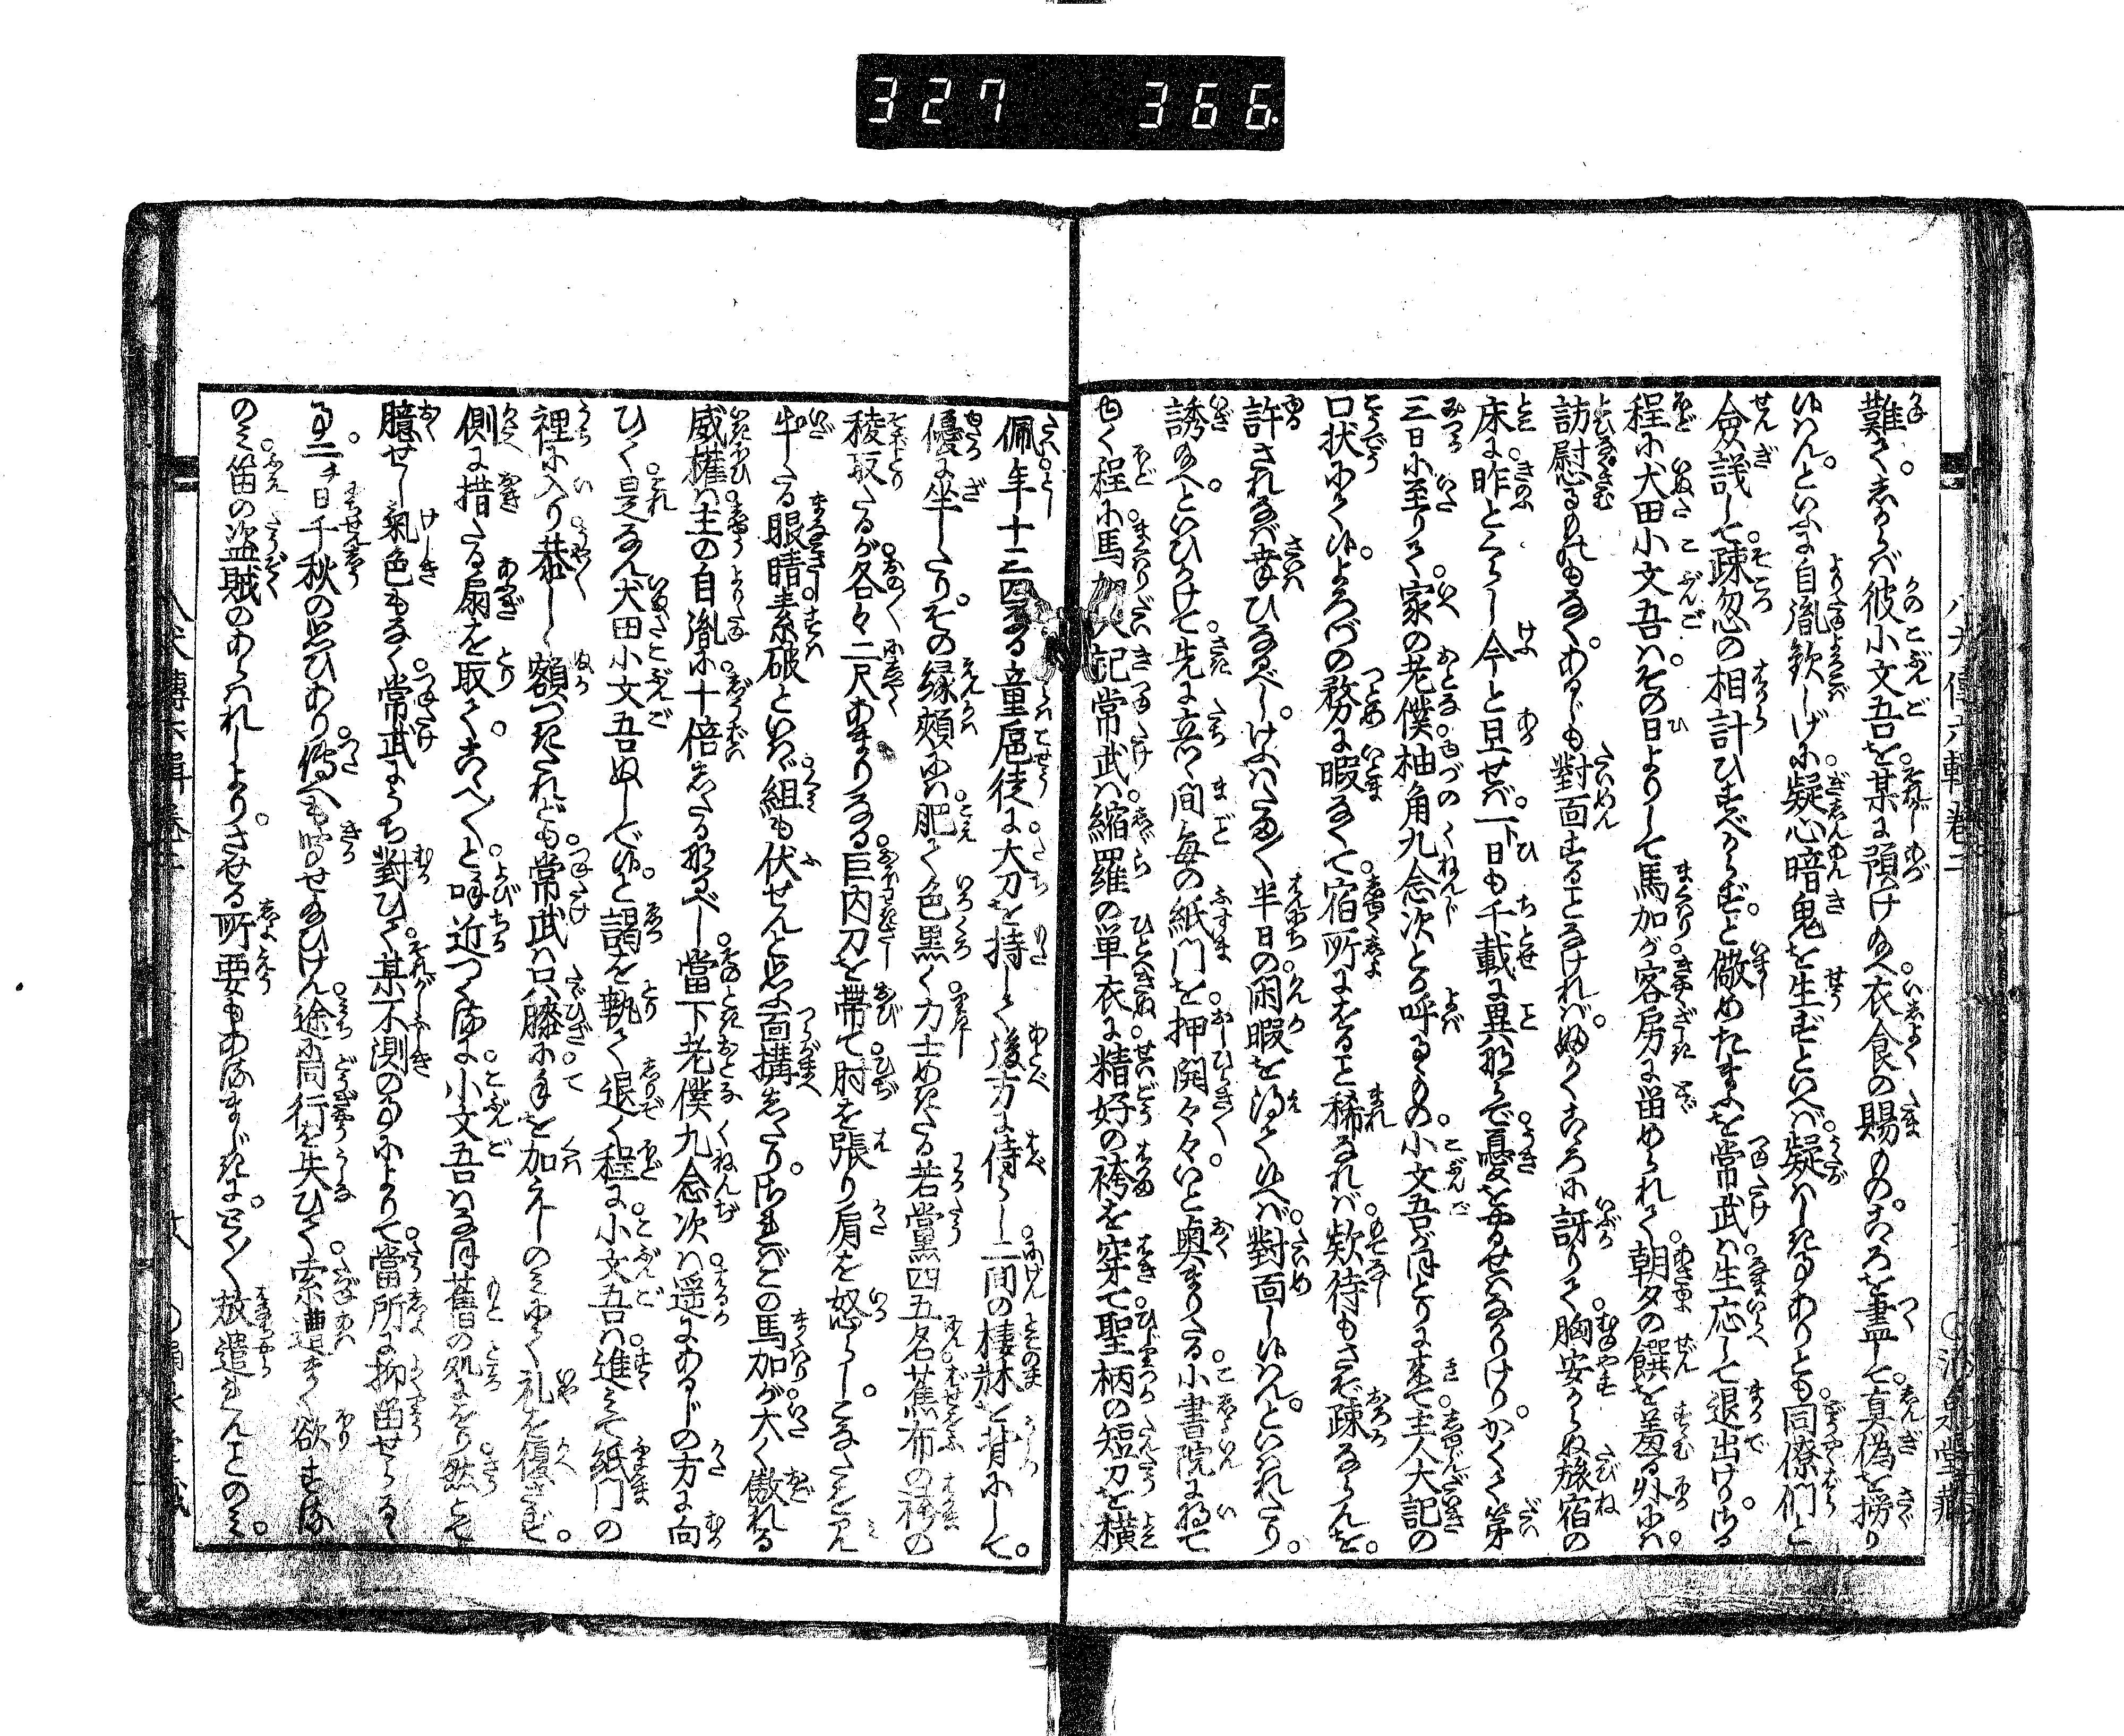 327 366.
難し。しからば彼小文吾を某に預け給へ。衣食の賜もの。こゝろを盡して。真偽を撈り
候はんといふに自胤歓しげに。疑心暗鬼を生ずといへば。疑はしき事ありとも。同僚們と
僉議して。疎忽の相計ひすべからずと儆めたまふを常武は。生応して退出けり。さる
程に犬田小文吾は。その日よりして馬加が客房に留められて。朝夕の饌を羞る外には。
訪慰るものもなく。あるじも對面することなければ。ふかくこゝろに訝りて。胸安からぬ旅宿の
床に。昨とくらし今と旦せば。一日も千載に異ならで。憂をやるせはなかりけり。かくて第
三日に至りて。家の老僕。柚角九念次とか呼るゝもの。小文吾がほとりに来て。主人大記の
口状にて候。よろづの務に暇なくて。宿所にをること稀なれば。欵待もさぞ疎ならんを。
許されなば幸ひなるべし。けふはたま〳〵半日の閑暇を得て候へば。對面し候はん。といはれたり。
誘給へ。といひかけて。先に立つゝ間毎の紙門を。押開々々。いと奥まりたる。小書院に将て
ゆく程に。馬加大記常武は。縮羅の単衣に。精好の袴を穿て。聖柄の短刀を横
佩。年十三四なる童扈従に。大刀を持して後方に侍らし。一間の棲牀を背にして。
優に坐したり。その縁頬には。肥て色黒く。力士めきたる若黨四五名。蕉布の袴の
稜取たるが。各々二尺あまりなる。巨肉刀を帯て。肘を張り肩を怒らし。こなたを見
牛たる眼睛。素破といはゞ組も伏せんと思ふ面構したり。さればこの馬加が。大く傲れる
威權は。主の自胤に十倍したるなるべし。當下老僕九念次は。遥にあるじの方に向
ひて。是なん犬田小文吾ぬしで候。と謁を執て退く程に。小文吾は進みて紙門の
裡に入り。恭しく額つきたれども。常武は只膝に手を加えしのみにて。礼を復さず。
側に措たる扇を取て。こなたへ〳〵と呼近つくるに。小文吾はなほ舊の処にをり。然とて
臆せし氣色もなく。常武にうち對ひて。某不測の事によりて。當所に抑留せらるゝ
事。一日千秋の思ひあり。傳へも聞せ給ひけん。途に同行を失ひて。索遭まく欲する
のみ。笛の盗賊のあらはれしより。させる所要もあるまじきに。とく〳〵放遣せんとのみ。